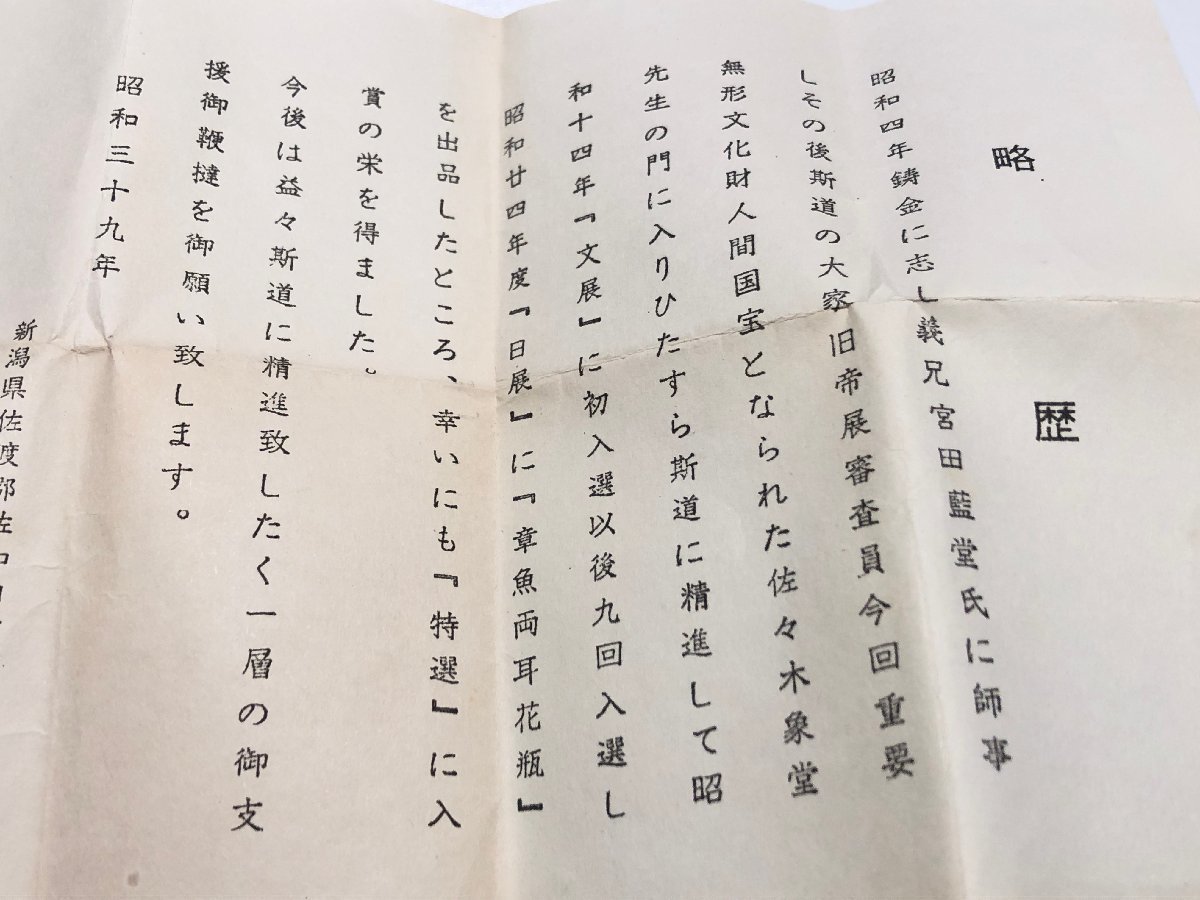 略歴
昭和四年鋳金に志し義兄宮田藍堂氏に師事
しその後斯道の大家旧帝展審査員今回重要
無形文化財人間国宝となられた佐々木象堂
先生の門に入りひたすら斯道に精進して昭
和十四年『文展』に初入選以後九回入選し
昭和廿四年度『日展』に『章魚両耳花瓶』
を出品したところ、幸いにも『特選』に入
賞の栄を得ました。
今後は益々斯道に精進致したく一層の御支
援御鞭撻を御願い致します。
昭和三十九年
新潟県佐渡郡佐